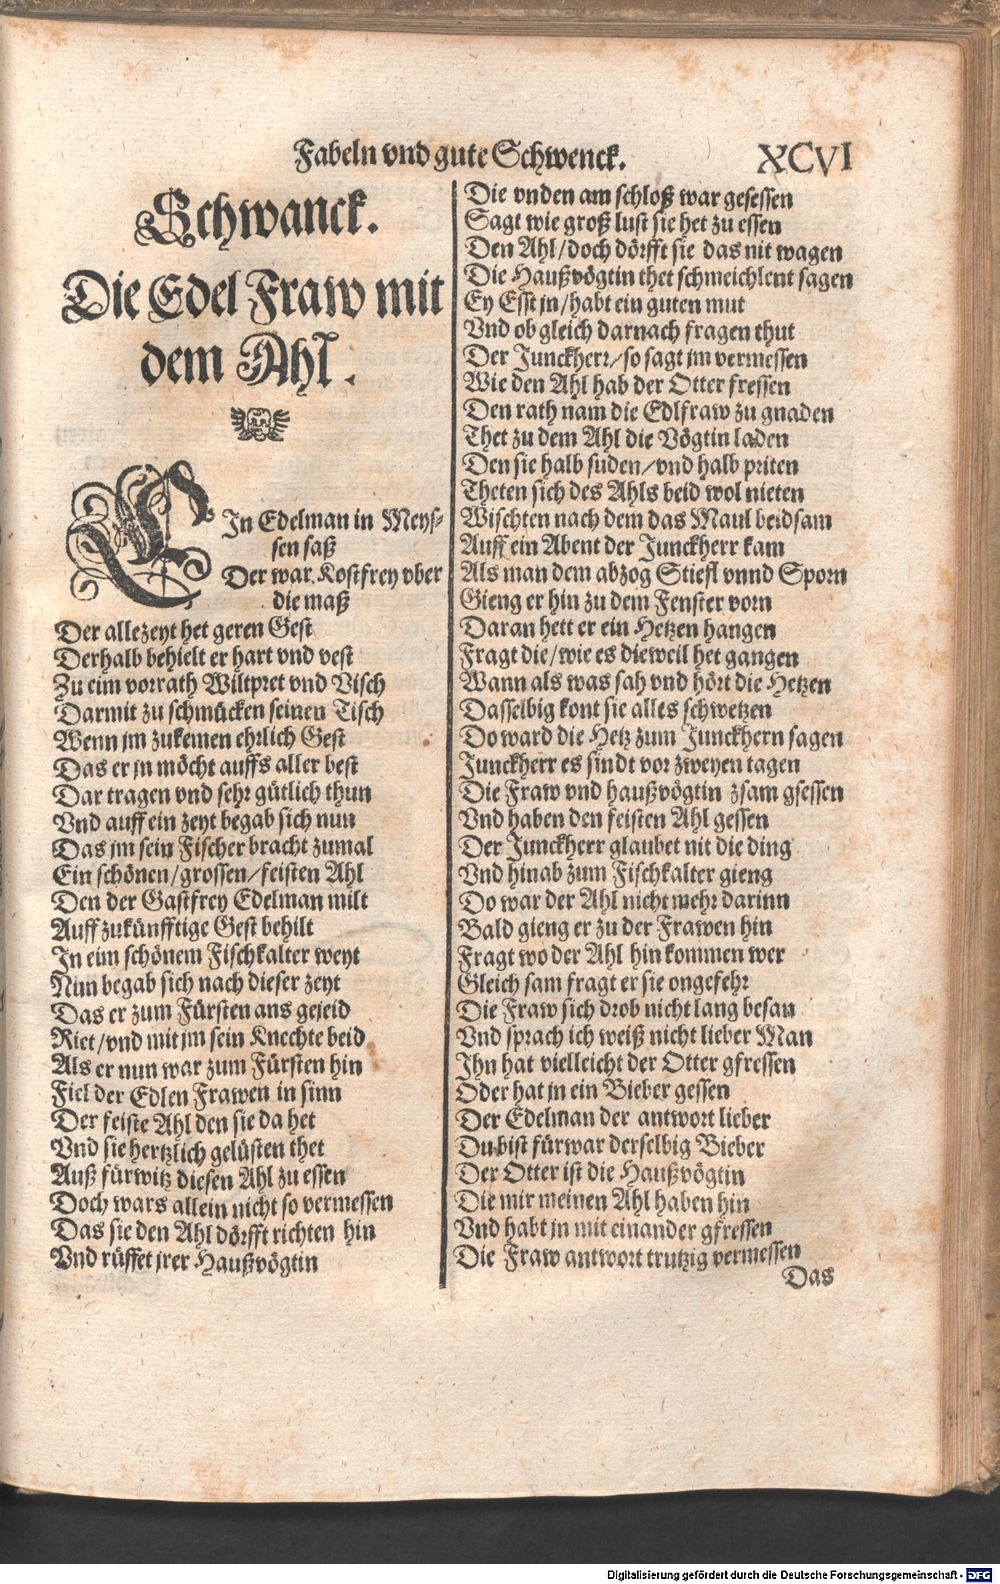 Fabeln vnd gute Schwenck. XCVI
Schwanck.
Die Edel Fraw mit
dem Ahl.
EIn Edelman in Meys-
sen saß
Der war Kostfrey vber
die maß
Der allezeyt het geren Gest
Derhalb behielt er hart vnd vest
Zu eim vorrath Wiltpret vnd Visch
Darmit zu schmücken seinen Tisch
Wenn jm zukemen ehrlich Gest
Das er jn möcht auffs aller best
Dar tragen vnd sehr gütlich thun
Vnd auff ein zeyt begab sich nun
Das jm sein Fischer bracht zumal
Ein schönen/grossen/feisten Ahl
Den der Gastfrey Edelman milt
Auff zukünfftige Gest behilt
In eim schönem Fischkalter weyt
Nun begab sich nach dieser zeyt
Das er zum Fürsten ans gejeid
Riet/vnd mit jm sein Knechte beid
Als er nun war zum Fürsten hin
Fiel der Edlen Frawen in sinn
Der feiste Ahl den sie da het
Vnd sie hertzlich gelüsten thet
Auß fürwitz diesen Ahl zu essen
Doch wars allein nicht so vermessen
Das sie den Ahl dörfft richten hin
Vnd rüffet jrer Haußvögtin
Die vnden am schloß war gesessen
Sagt wie groß lust sie het zu essen
Den Ahl/doch dörfft sie das nit wagen
Die Haußvögtin thet schmeichlent sagen
Ey Esst jn/habt ein guten mut
Vnd ob gleich darnach fragen thut
Der Junckherr/so sagt jm vermessen
Wie den Ahl hab der Otter fressen
Den rath nam die Edlfraw zu gnaden
Thet zu dem Ahl die Vögtin laden
Den sie halb suden/vnd halb priten
Theten sich des Ahls beid wol nieten
Wischten nach dem das Maul beidsam
Auff ein Abent der Junckherr kam
Als man dem abzog Stiefl vnnd Sporn
Gieng er hin zu dem Fenster vorn
Daran hett er ein Hetzen hangen
Fragt die/wie es dieweil het gangen
Wann als was sah vnd hört die Hetzen
Dasselbig kont sie alles schwetzen
Do ward die Hetz zum Junckhern sagen
Junckherr es sindt vor zweyen tagen
Die Fraw vnd haußvögtin zsam gsessen
Vnd haben den feisten Ahl gessen
Der Junckherr glaubet nit die ding
Vnd hinab zum Fischkalter gieng
Do war der Ahl nicht mehr darinn
Bald gieng er zu der Frawen hin
Fragt wo der Ahl hin kommen wer
Gleich sam fragt er sie ongefehr
Die Fraw sich drob nicht lang besan
Vnd sprach ich weiß nicht lieber Man
Ihn hat vielleicht der Otter gfressen
Oder hat jn ein Bieber gessen
Der Edelman der antwort lieber
Du bist fürwar derselbig Bieber
Der Otter ist die Haußvögtin
Die mir meinen Ahl haben hin
Vnd habt jn mit einander gfressen
Die Fraw antwort trutzig vermessen
Das
Digitalisierung gefördert durch die Deutsche Forschungsgemeinschaft - DFG